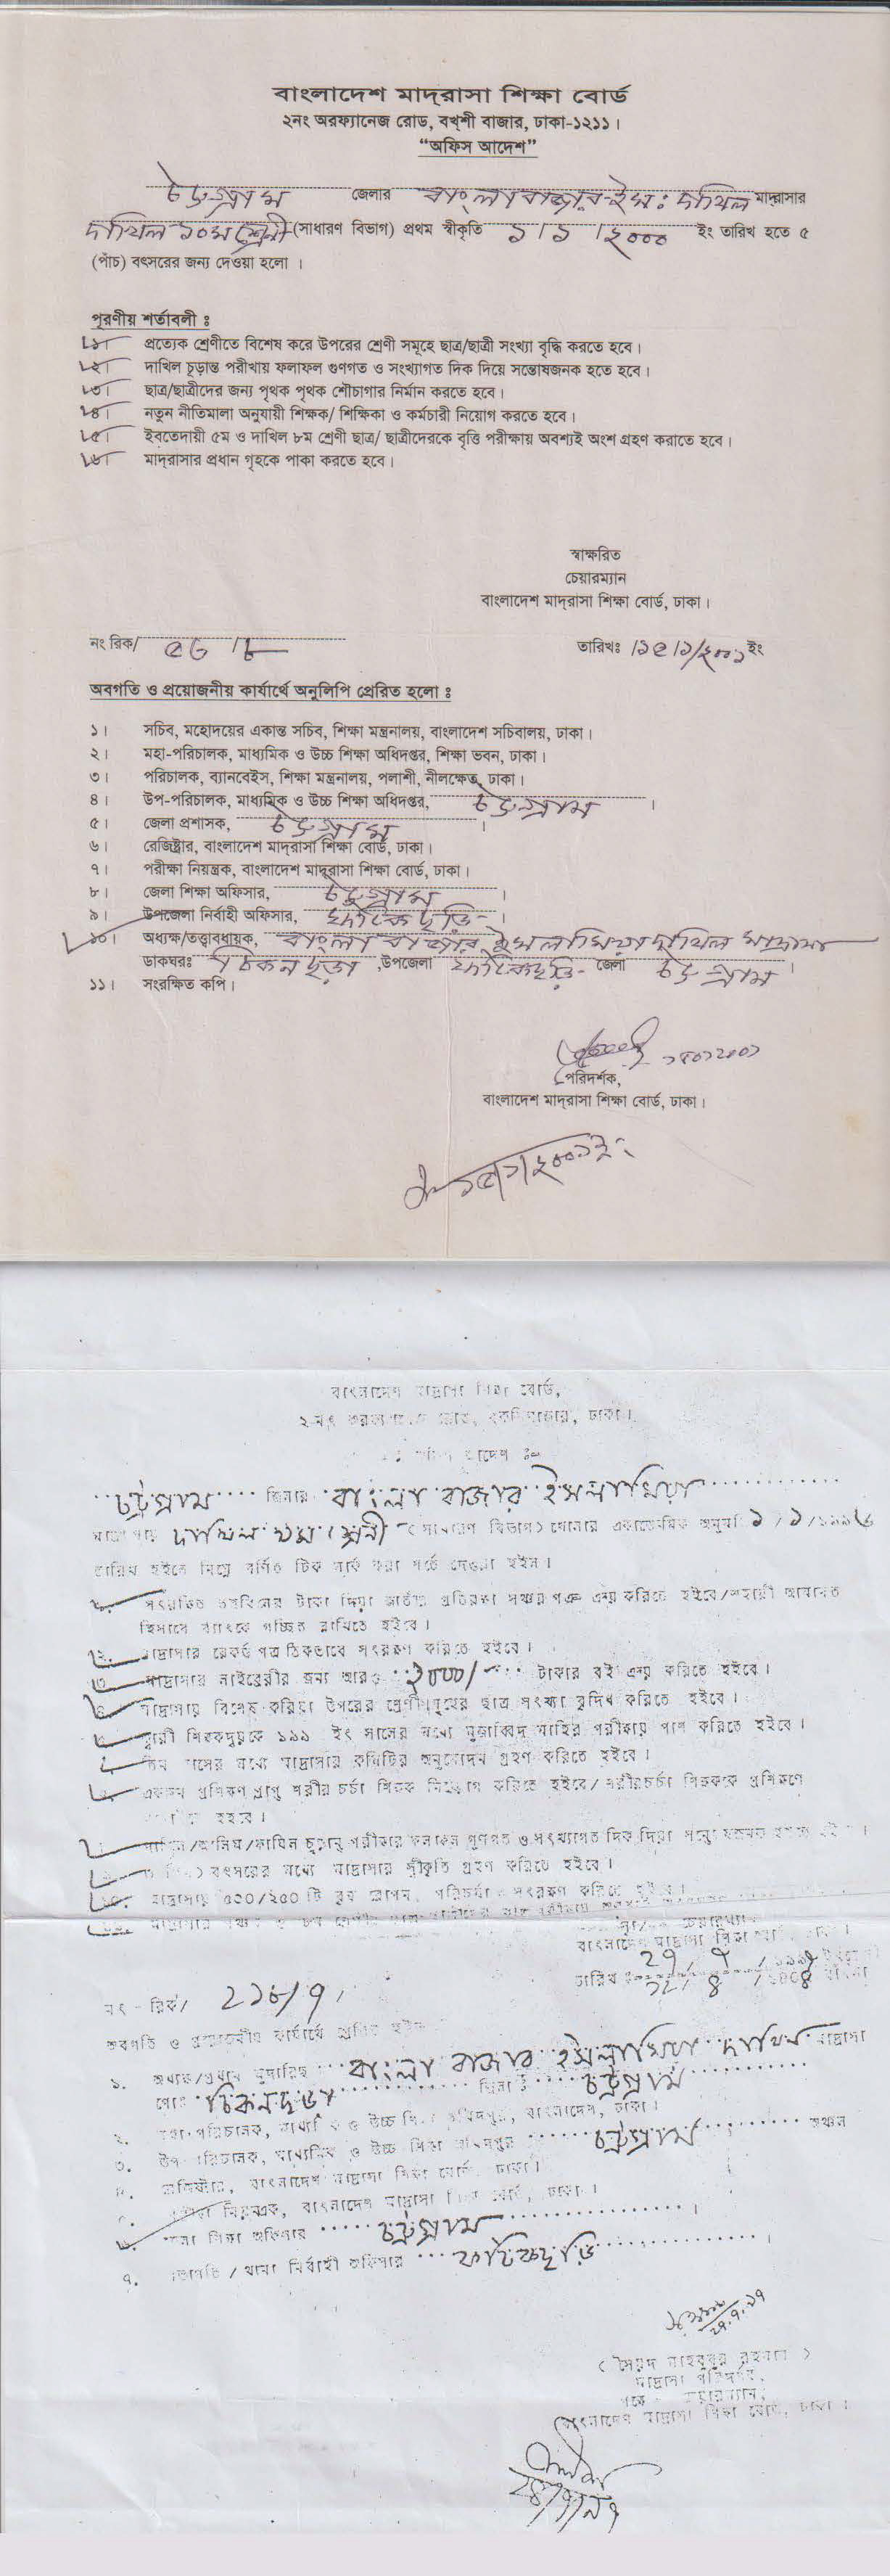 বাংলাদেশ মাদ্‌রাসা শিক্ষা বোর্ড
২নং অরফ্যানেজ রোড, বখ্‌শী বাজার, ঢাকা-১২১১।
“অফিস আদেশ”
চট্টগ্রাম জেলার বাংলা বাজার ইস: দাখিল মাদ্‌রাসার
দাখিল ১০ম শ্রেনী (সাধারণ বিভাগ) প্রথম স্বীকৃতি ১/১/২০০০ ইং তারিখ হতে ৫
(পাঁচ) বৎসরের জন্য দেওয়া হলো ।
পূরণীয় শর্তাবলী ঃ
১। প্রত্যেক শ্রেণীতে বিশেষ করে উপরের শ্রেণী সমূহে ছাত্র/ছাত্রী সংখ্যা বৃদ্ধি করতে হবে।
২। দাখিল চূড়ান্ত পরীখায় ফলাফল গুণগত ও সংখ্যাগত দিক দিয়ে সন্তোষজনক হতে হবে।
৩। ছাত্র/ছাত্রীদের জন্য পৃথক পৃথক শৌচাগার নির্মান করতে হবে।
৪। নতুন নীতিমালা অনুযায়ী শিক্ষক/ শিক্ষিকা ও কর্মচারী নিয়োগ করতে হবে।
৫। ইবতেদায়ী ৫ম ও দাখিল ৮ম শ্রেণী ছাত্র/ ছাত্রীদেরকে বৃত্তি পরীক্ষায় অবশ্যই অংশ গ্রহণ করাতে হবে।
৬। মাদ্‌রাসার প্রধান গৃহকে পাকা করতে হবে।
স্বাক্ষরিত
চেয়ারম্যান
বাংলাদেশ মাদ্‌রাসা শিক্ষা বোর্ড, ঢাকা।
নং রিক/ তারিখঃ ১৫/১/২০০১ ইং
অবগতি ও প্রয়োজনীয় কার্যার্থে অনুলিপি প্রেরিত হলো ঃ
১। সচিব, মহোদয়ের একান্ত সচিব, শিক্ষা মন্ত্রনালয়, বাংলাদেশ সচিবালয়, ঢাকা।
২। মহা-পরিচালক, মাধ্যমিক ও উচ্চ শিক্ষা অধিদপ্তর, শিক্ষা ভবন, ঢাকা।
৩। পরিচালক, ব্যানবেইস, শিক্ষা মন্ত্রনালয়, পলাশী, নীলক্ষেত, ঢাকা।
৪। উপ-পরিচালক, মাধ্যমিক ও উচ্চ শিক্ষা অধিদপ্তর, চট্টগ্রাম ।
৫। জেলা প্রশাসক, চট্টগ্রাম ।
৬। রেজিষ্ট্রার, বাংলাদেশ মাদ্‌রাসা শিক্ষা বোর্ড, ঢাকা।
৭। পরীক্ষা নিয়ন্ত্রক, বাংলাদেশ মাদ্‌রাসা শিক্ষা বোর্ড, ঢাকা।
৮। জেলা শিক্ষা অফিসার, চট্টগ্রাম ।
৯। উপজেলা নির্বাহী অফিসার, ফটিকছড়ি ।
১০। অধ্যক্ষ/তত্ত্বাবধায়ক, বাংলা বাজার ইসলামিয়া দাখিল মাদ্রাসা
ডাকঘরঃ চিকনছড়া ,উপজেলা ফটিকছড়ি জেলা চট্টগ্রাম ।
১১। সংরক্ষিত কপি।
পরিদর্শক,
বাংলাদেশ মাদ্‌রাসা শিক্ষা বোর্ড, ঢাকা।
১৫/১/২০০১ইং
বাংলাদেশ মাদ্রাসা শিক্ষা বোর্ড,
২ নং ঢাকা।
আদেশ ঃ
চট্টগ্রাম জিলার বাংলা বাজার ইসলামিয়া
দাখিল ৯ম শ্রেনী (সাধারণ বিভাগ) খোলার একাডেমিক ১/১/১৯৯৬
তারিখ হইতে নিম্নে বর্ণিত টিক মার্ক করা শর্তে দেওয়া হইল।
টাকা দিয়া জাতীয় প্রতিরক্ষা সঞ্চয় পত্র ক্রয় করিতে হইবে/স্থায়ী আমানত
হিসাবে ব্যাংকে গচ্ছিত রাখিতে হইবে।
২. মাদ্রাসার রেকর্ড পত্র ঠিকভাবে সংরক্ষণ করিতে হইবে।
৩. মাদ্রাসার লাইব্রেরীর জন্য আরও ২০০০/- টাকার বই ক্রয় করিতে হইবে।
৪. মাদ্রাসায় বিশেষ করিয়া উপরের শ্রেণী সমূহের ছাত্র সংখ্যা বৃদ্ধি করিতে হইবে।
৫. ক্বারী শিক্ষকদ্বয়কে ১৯৯ ইং সালের মধ্যে মুজাব্বিদ মাহির পরীক্ষায় পাশ করিতে হইবে।
তিন মাসের মধ্যে মাদ্রাসার কমিটির অনুমোদন গ্রহণ করিতে হইবে।
একজন প্রশিক্ষণ প্রাপ্ত শরীর চর্চা শিক্ষক নিয়োগ করিতে হইবে/ শরীরচর্চা শিক্ষককে প্রশিক্ষণে
হইবে।
দাখিল/আলিম/ফাযিল চূড়ান্ত পরীক্ষার ফলাফল গুণগত ও সংখ্যাগত দিক দিয়া
বৎসরের মধ্যে মাদ্রাসার স্বীকৃতি গ্রহণ করিতে হইবে।
১০. মাদ্রাসায় ৫০০/২৫০ টি বৃক্ষ রোপন, পরিচর্যা ও সংরক্ষণ করিতে হইবে।
চেয়ারম্যান
বাংলাদেশ মাদ্রাসা শিক্ষা
তারিখ ঃ
নং - রিক/ ২১৮/৭
অবগতি ও প্রয়োজনীয় কার্যার্থে
১. অধ্যক্ষ/প্রধান বাংলা বাজার ইসলামিয়া দাখিল মাদ্রাসা
পোঃ চিকনছড়া জিলা চট্টগ্রাম
২. মহা পরিচালক, মাধ্যমিক ও উচ্চ শিক্ষা অধিদপ্তর, বাংলাদেশ, ঢাকা।
৩. উপ পরিচালক, মাধ্যমিক ও উচ্চ শিক্ষা অধিদপ্তর চট্টগ্রাম অঞ্চল
৪. রেজিষ্টার, বাংলাদেশ মাদ্রাসা শিক্ষা বোর্ড, ঢাকা।
নিয়ন্ত্রক, বাংলাদেশ মাদ্রাসা শিক্ষা বোর্ড, ঢাকা।
৬. জেলা শিক্ষা অফিসার চট্টগ্রাম ।
৭. সভাপতি / থানা নির্বাহী অফিসার ফটিকছড়ি ।
২৭.৭.৯৭
( সৈয়দ মাহবুবুর রহমান )
মাদ্রাসা পরিদর্শক,
পক্ষে - চেয়ারম্যান,
বাংলাদেশ মাদ্রাসা শিক্ষা বোর্ড, ঢাকা ।